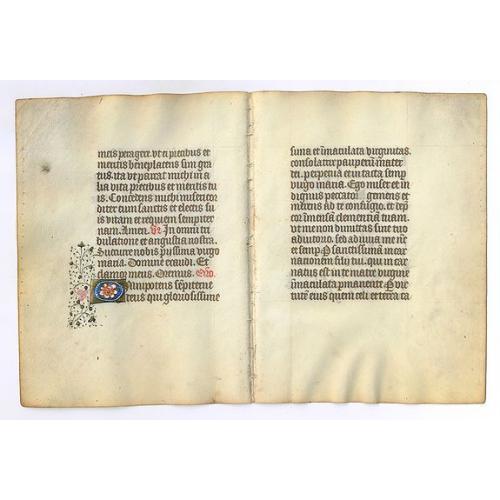 meis peragere. ut ei precibus et
meritis beneplacens sim gra
tus. ita ut pareat michi in a
lia vita precibus et meritis tu
is. Concedens michi misericor
diter cum sanctis et electis su
is vitam et requiem sempiter
nam. Amen. In omni tri
bulatione et angustia nostra.
Succurre nobis piissima virgo
maria. Domine exaudi. Et
clamor meus. Oremus. Oro.
Omnipotens sēpiterne
deus qui gloriosissime
suna et īmaculata virginitas.
consolatrix pauperū mater
dei. perpetua et intacta semp
virgo maria. Ego miser et in
dignus peccator gemens et
merens ad te confugio. et dep
cor īmensā clementiā tuam.
ut me non dimittas sine tuo
adiutorio. sed adiuva me nūc
et semp. Per sanctissimā incar
nationem filii tui. qui incar
natus est in te matre virgine
īmaculata pmanente. Per vir
tute eius quem celi et terra ca